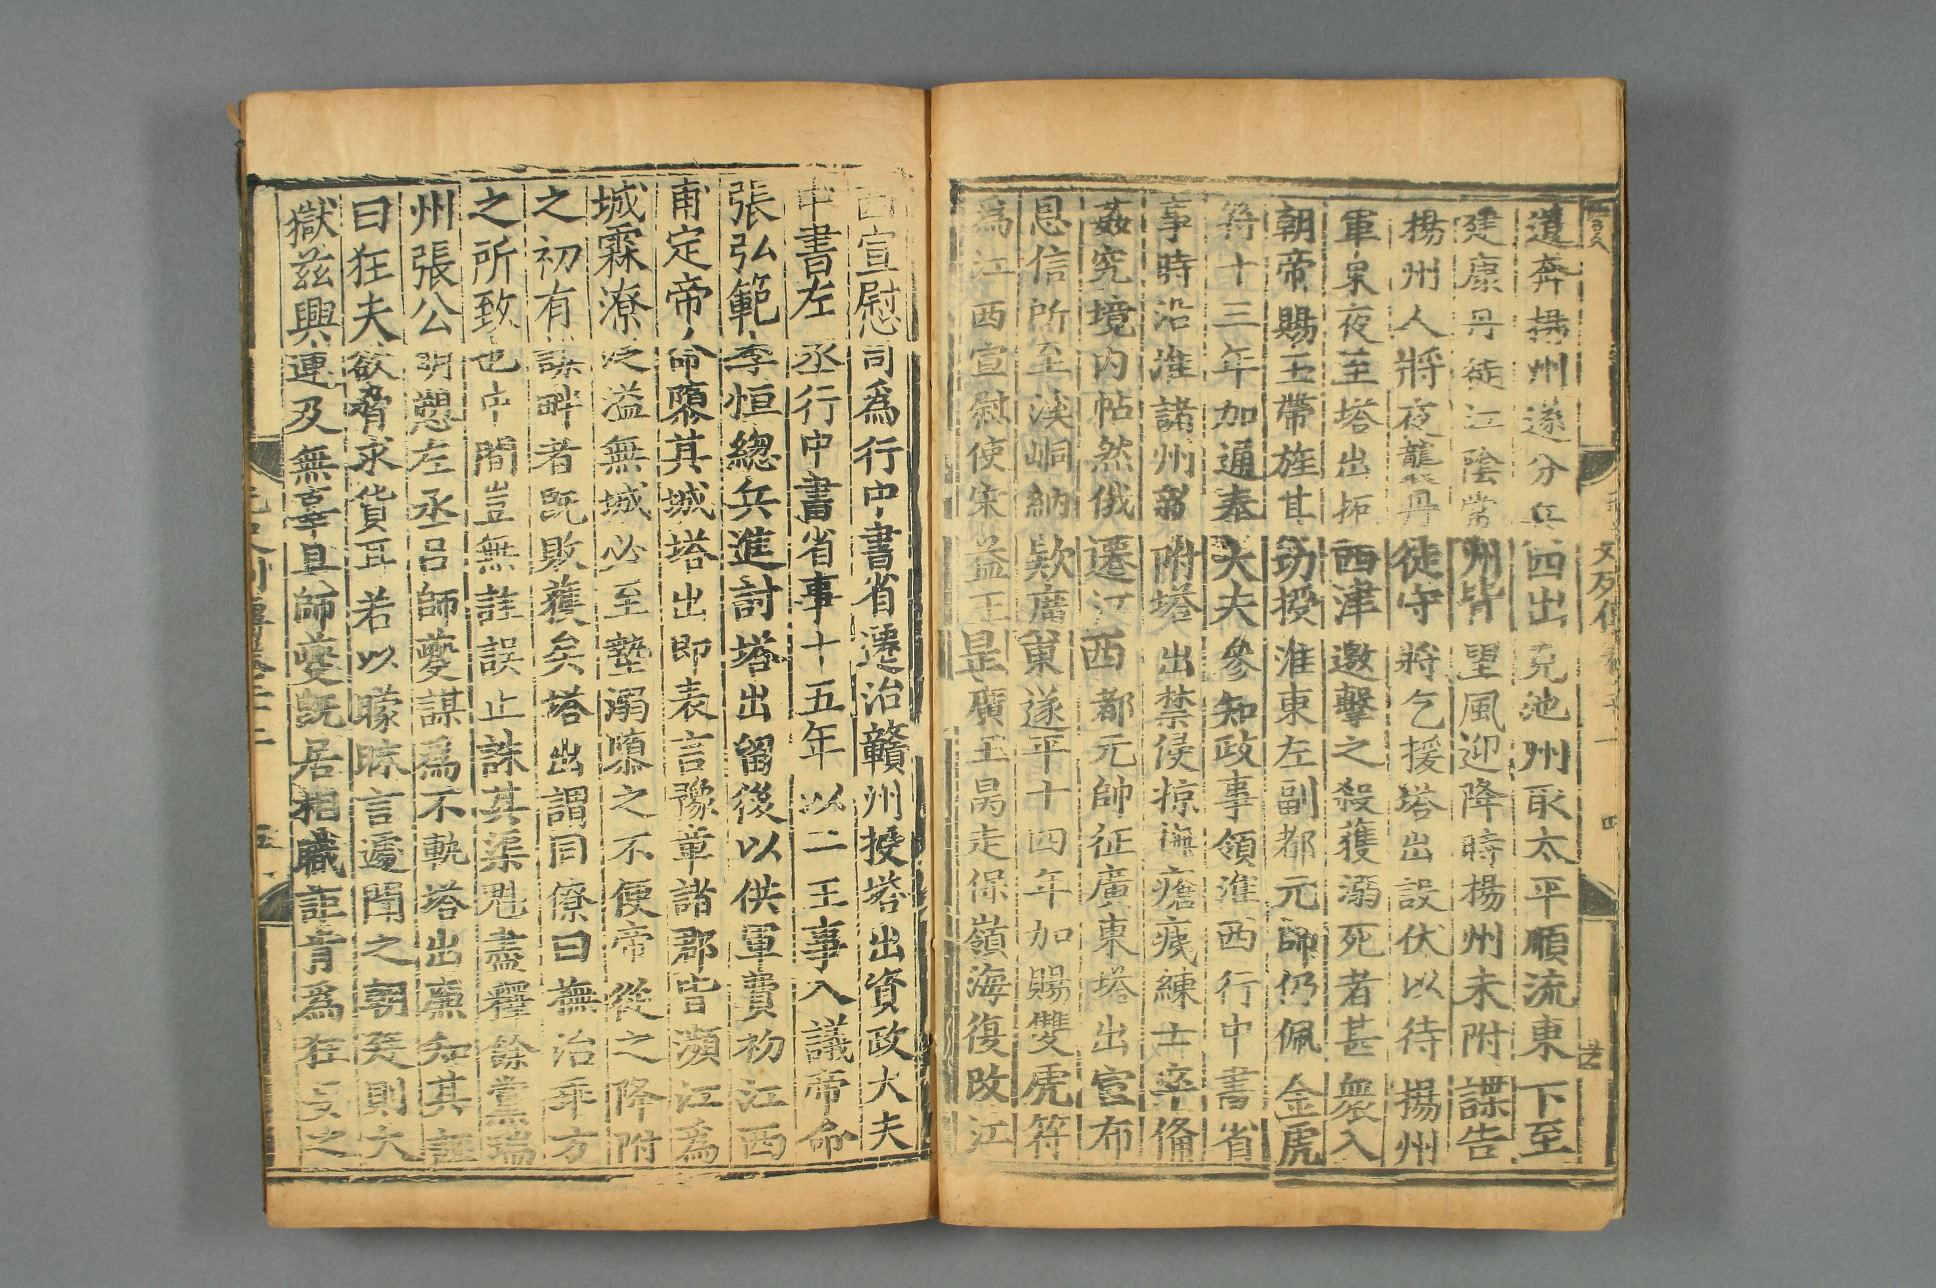 遺奔揚州遂分兵西出克池州取太平順流東下至
建康丹徒江陰常州皆望風迎降時揚州未附諜告
揚州人將夜襲丹徒守將乞援塔出設伏以待揚州
軍果夜至塔出扼西津邀擊之殺獲溺死者甚衆入
朝帝賜玉帶旌其功授淮東左副都元帥仍佩金虎
符十三年加通奉大夫參知政事領淮西行中書省
事時沿淮諸州新附塔出禁侵掠撫瘡痍練士卒備
姦宄境内帖然俄遷江西都元帥征廣東塔出宣布
恩信所至溪峒納款廣東遂平十四年加賜雙虎符
爲江西宣慰使宋益王昰廣王昺走保嶺海復改江
西宣慰司爲行中書省遷治贛州授塔出資政大夫
中書左丞行中書省事十五年以二王事入議帝命
張弘範李恒總兵進討塔出留後以供軍費初江西
甫定帝命隳其城塔出即表言豫章諸郡皆瀕江爲
城霖潦泛溢無城必至墊溺隳之不便帝從之降附
之初有謀畔者既敗獲矣塔出謂同僚曰撫治乖方
之所致也中間豈無詿誤止誅其渠魁盡釋餘黨瑞
州張公明愬左丞呂師夔謀爲不軌塔出廉知其誣
曰狂夫欲脅求貨耳若以矇眛言遽聞之朝廷則大
獄茲興連及無辜且師夔既居相職詎肯爲狂妄之